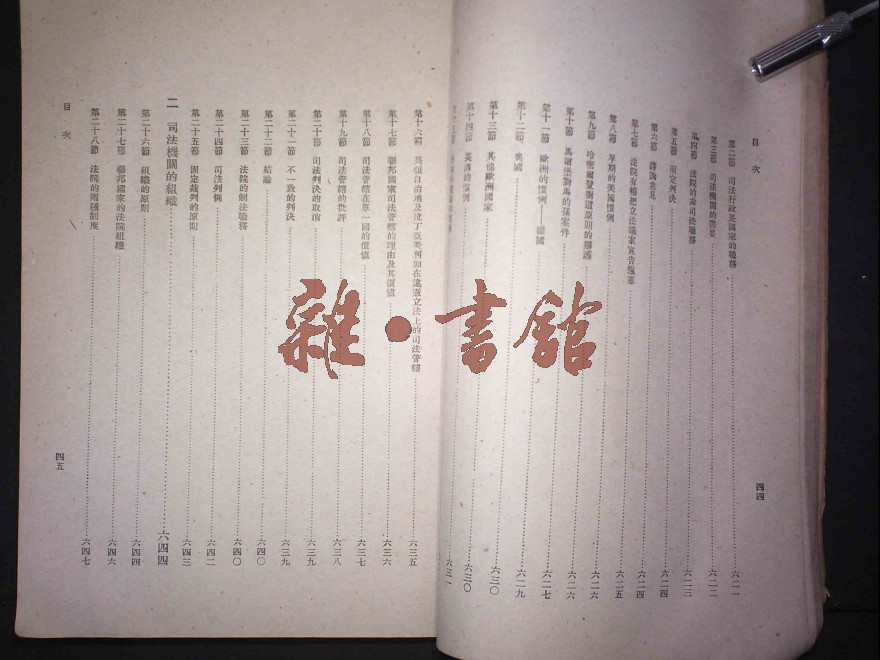 目次
第二節 司法行政是國家的職務 六二一
第三節 司法機關的需要 六二二
第四節 法院的非司法職務 六二三
第五節 前定判決 六二四
第六節 諮詢意見
第七節 法院有權把立法議案宣告違憲 六二四
第八節 早期的美國慣例 六二五
第九節 哈密爾登對這原則的辯護 六二六
第十節 馬爾堡對馬的孫案件 六二六
第十一節 歐洲的慣例——德國 六二七
第十二節 奧國 六二九
第十三節 其他歐洲國家 六三〇
第十四節 英國的慣例 六三〇
六三一
四四
目次
第十六節 英領自治地及拉丁亞美利加在違憲立法上的司法管轄 六三五
第十七節 聯邦國家司法管轄的理由及其價值 六三六
第十八節 司法管轄在單一國的價值 六三七
第十九節 司法管轄的批評 六三八
第二十節 司法判決的取消 六三九
第二十一節 不一致的判決 六三九
第二十二節 結論 六四〇
第二十三節 法院的制法職務 六四〇
第二十四節 司法判例 六四二
第二十五節 固定裁判的原則 六四三
二 司法機關的組織 六四四
第二十六節 組織的原則 六四四
第二十七節 聯邦國家的法院組織 六四六
第二十八節 法院的兩種制度 六四七
四五
雜·書館